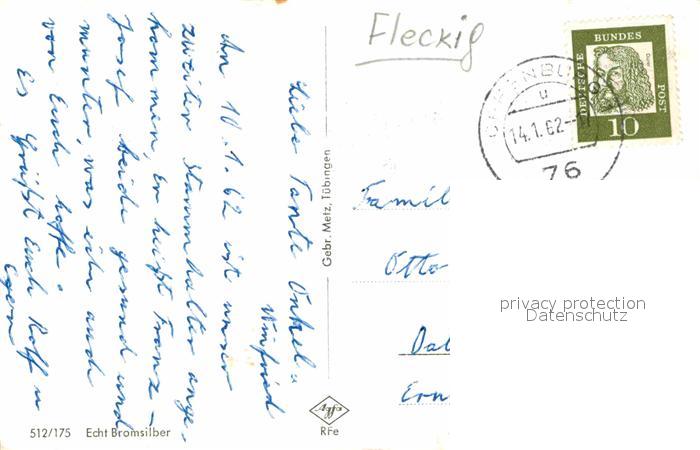 Fleckig
DEUTSCHE
BUNDES
POST
10
14.1.62
76
Liebe Tante Onkel u
Winfried
Am 10.1.62 ist unser
zweiter Stammhalter ange-
kommen, Er heißt Franz-
Josef beide gesund und
munter, was wir auch
von Euch hoffe.
Es Grüßt Euch Rolf u
Gebr. Metz, Tübingen
Famil
Otto
Ern
privacy protection
Datenschutz
Agfa
RFe
512/175 Echt Bromsilber